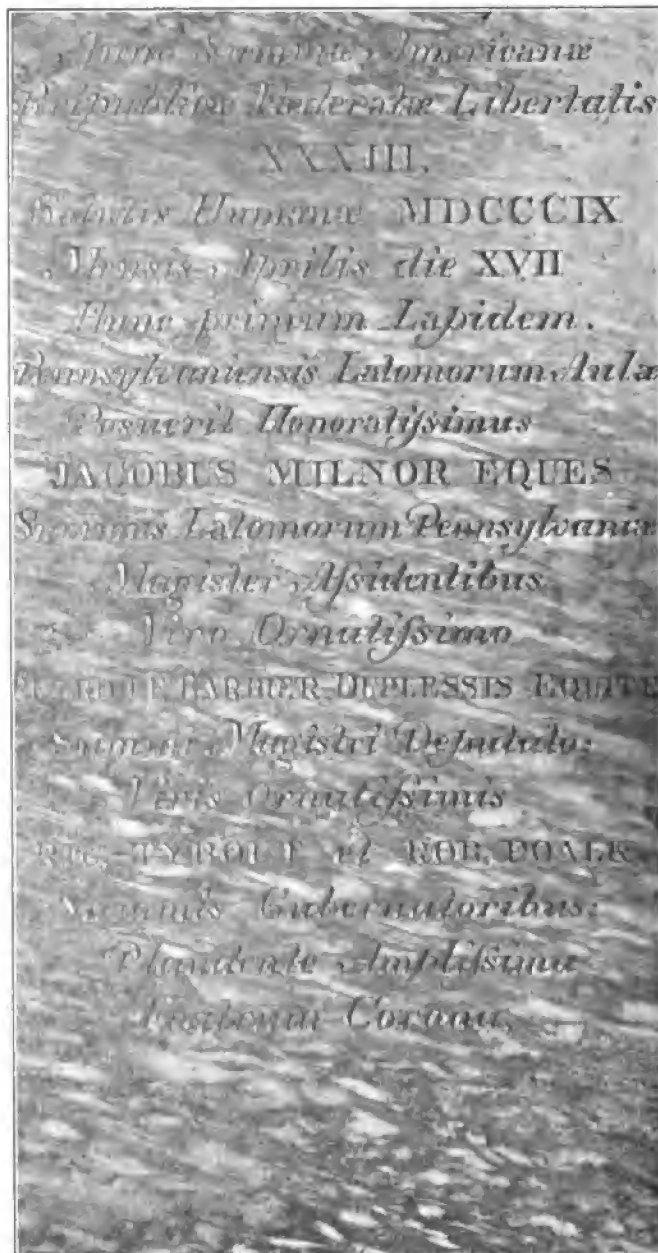 Anno Summæ Americanæ
Reipublicæ Federatæ Libertatis
XXXIII.
Salutis Humanæ MDCCCIX
Mensis Aprilis die XVII
Hunc primum Lapidem.
Pennsylvaniensis Latomorum Aulæ
Posuerit Honoratiſsimus
JACOBUS MILNOR EQUES
Summus Latomorum Pennsylvaniæ
Magister Aſsidentibus
Viro Ornatiſsimo
PETRO LE BARBIER DEPLESSIS EQUITE
Summi Magistri Deputato:
Viris Ornatiſsimis
RIC. TYBOUT et ROB. POALK
Summis Gubernatoribus:
Plaudente Ampliſsima
Fratrum Corona.